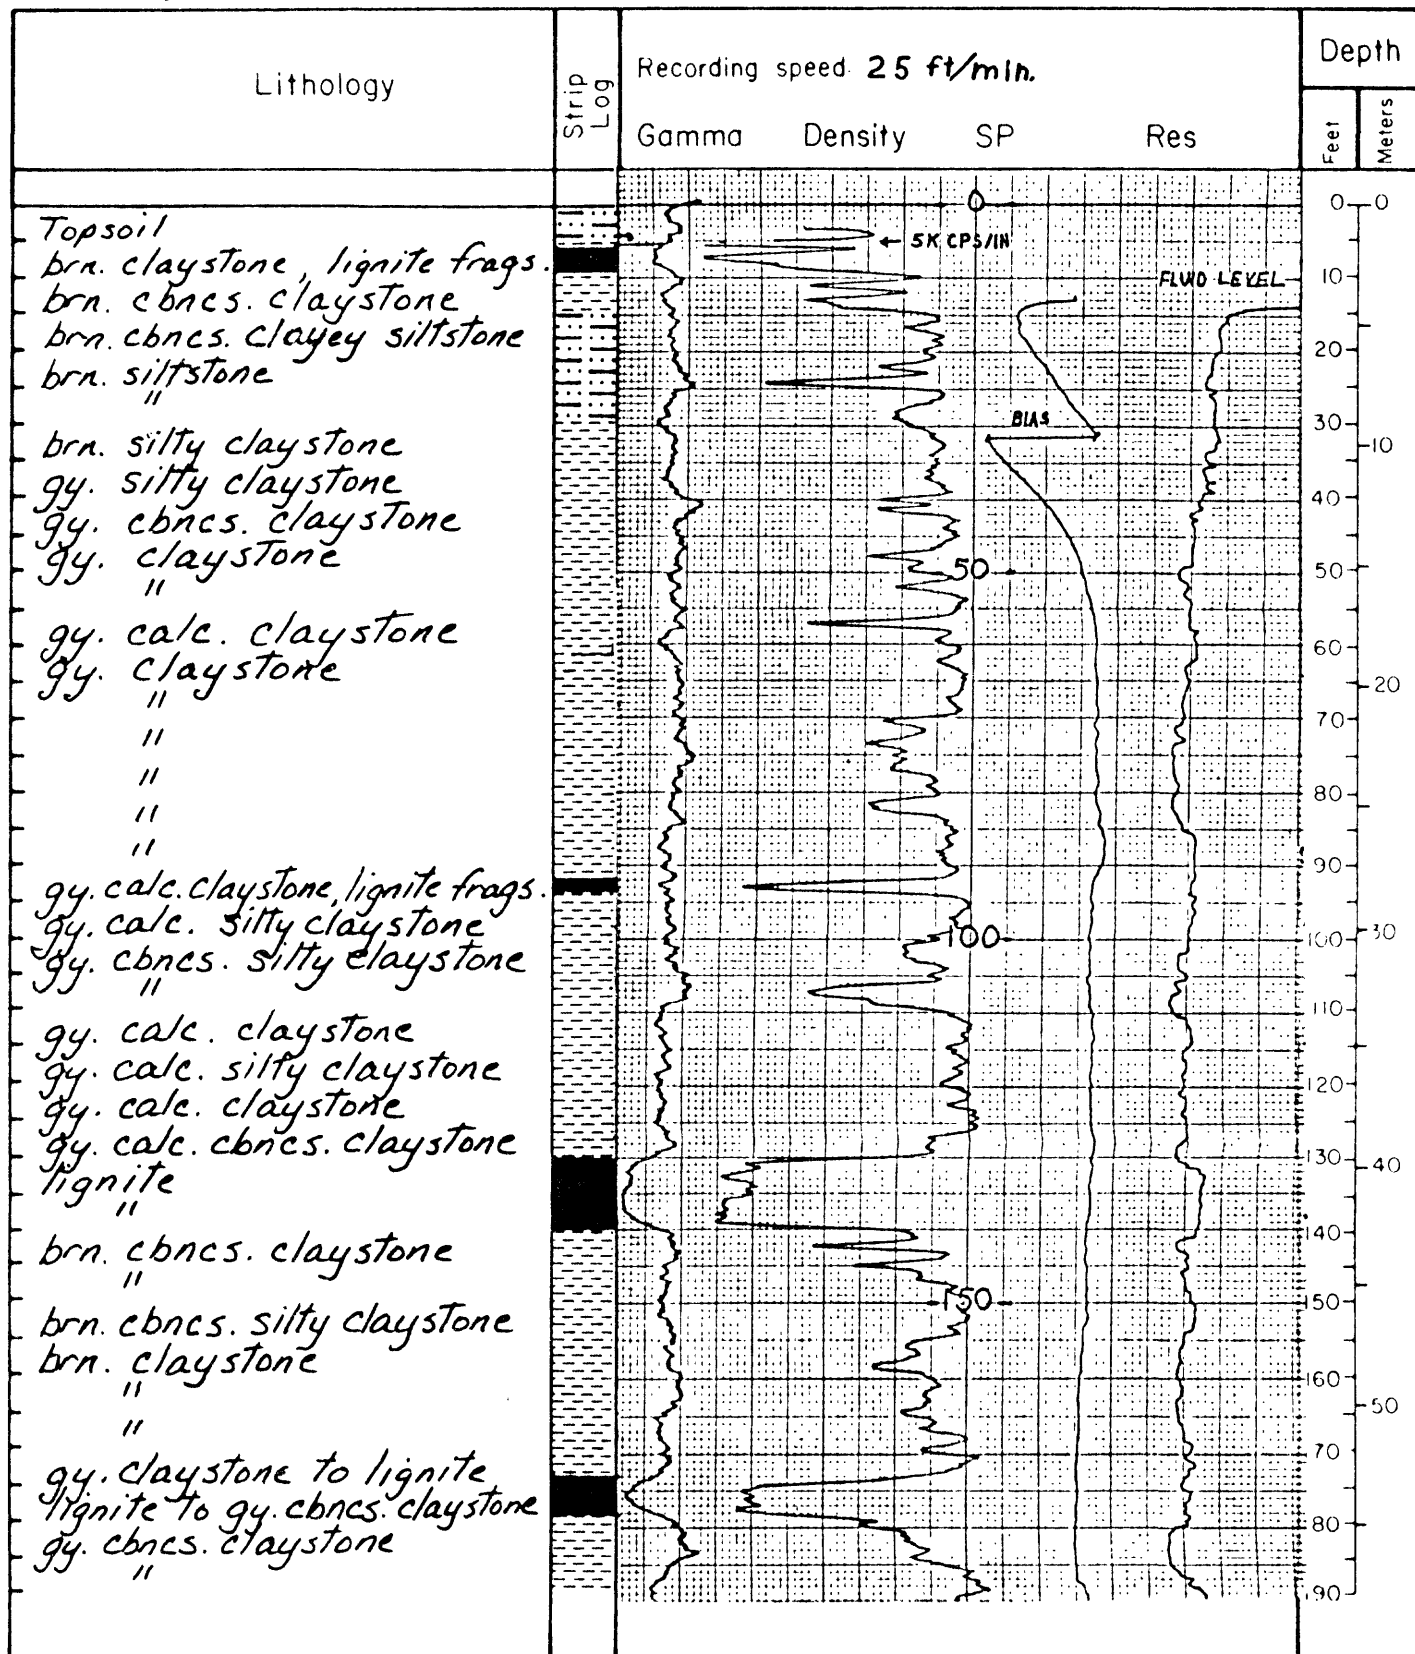 Lithology
Strip Log
Recording speed 25 ft/min.
Gamma Density SP Res
Depth
Feet
Meters
Topsoil
brn. claystone, lignite frags.
brn. cbncs. claystone
brn. cbncs. clayey siltstone
brn. siltstone
"
brn. silty claystone
gy. silty claystone
gy. cbncs. claystone
gy. claystone
"
gy. calc. claystone
gy. claystone
"
"
"
"
"
gy. calc. claystone, lignite frags.
gy. calc. silty claystone
gy. cbncs. silty claystone
"
gy. calc. claystone
gy. calc. silty claystone
gy. calc. claystone
gy. calc. cbncs. claystone
lignite
"
brn. cbncs. claystone
"
brn. cbncs. silty claystone
brn. claystone
"
"
gy. claystone to lignite
lignite to gy. cbncs. claystone
gy. cbncs. claystone
"
0
5K CPS/IN
FLUID LEVEL
BIAS
50
100
150
0
10
20
30
40
50
60
70
80
90
100
110
120
130
140
150
160
70
80
90
0
10
20
30
40
50